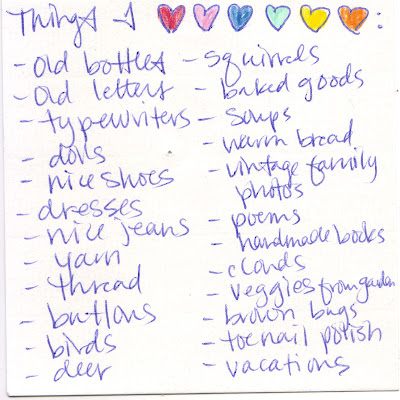 Things I ❤️🩷💙💚💛🧡:
- old bottles
- old letters
- typewriters
- dolls
- nice shoes
- dresses
- nice jeans
- yarn
- thread
- buttons
- birds
- deer
- squirrels
- baked goods
- soups
- warm bread
- vintage family
photos
- poems
- handmade books
- clouds
- veggies from garden
- brown bags
- toenail polish
- vacations